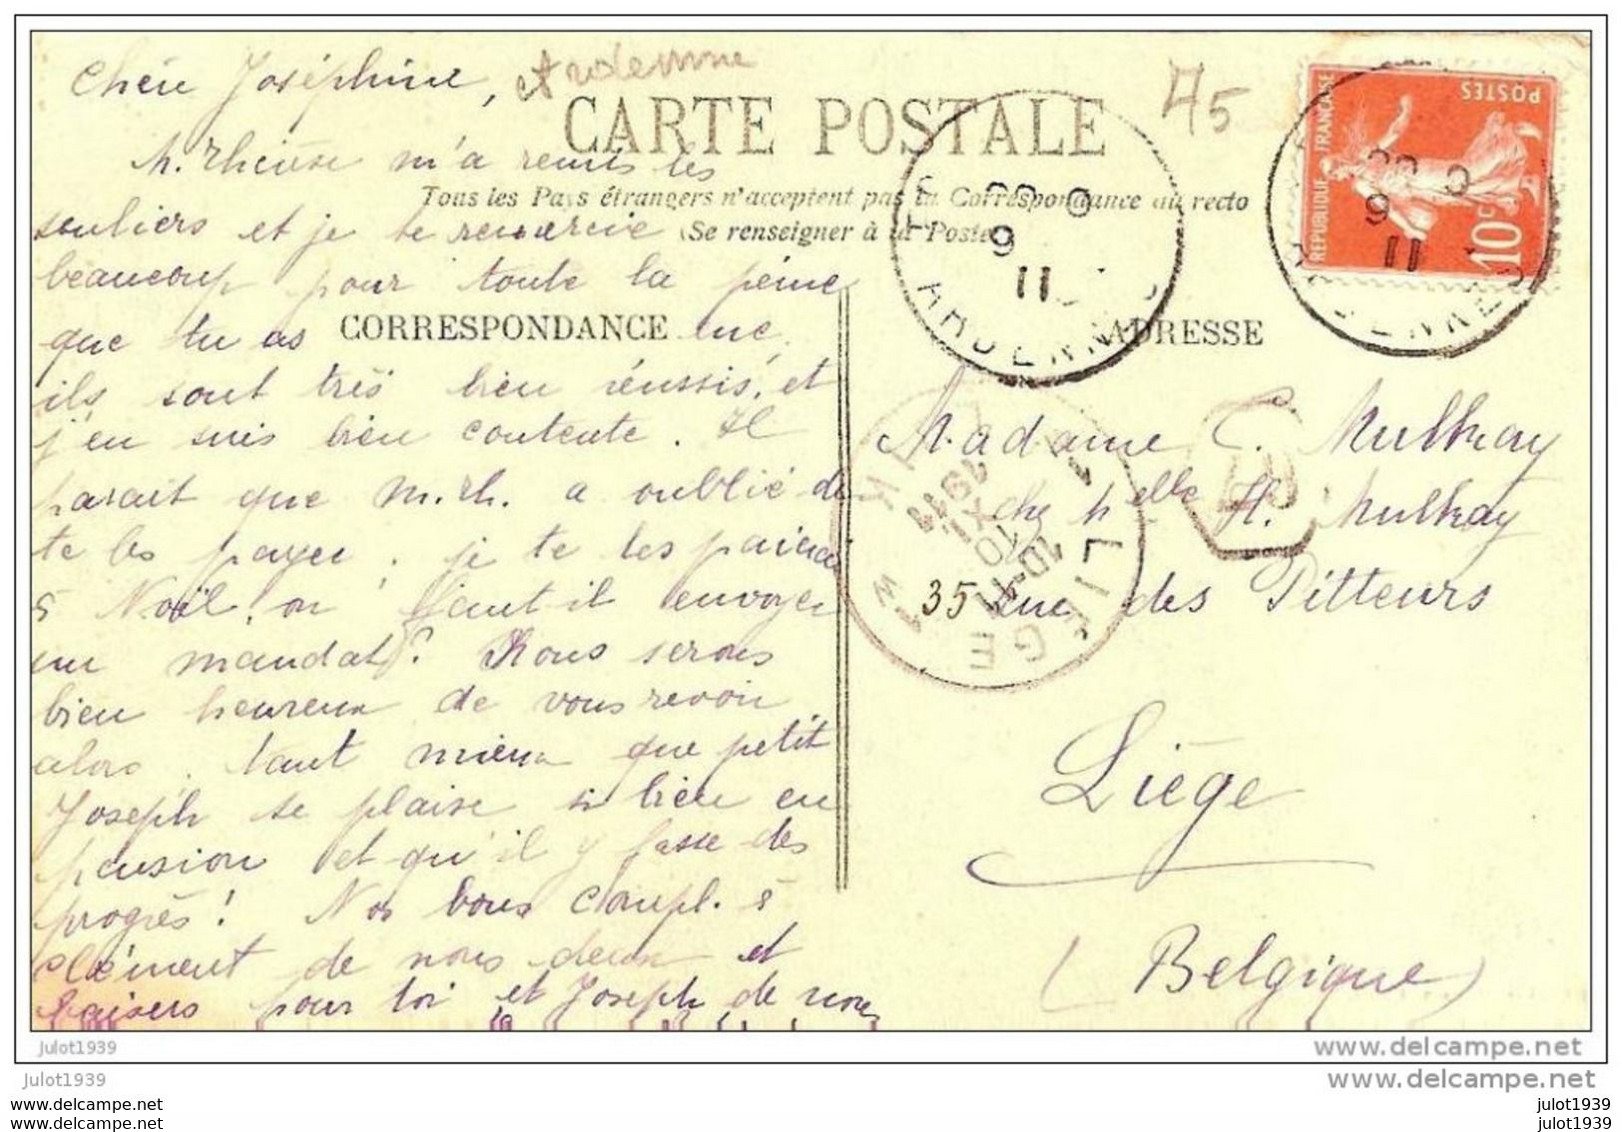 Chère Joséphine, Ardenne
45
CARTE POSTALE
POSTES
RÉPUBLIQUE FRANÇAISE
10c
Tous les Pays étrangers n'acceptent pas la Correspondance au recto
(Se renseigner à la Poste)
M. Thérèse m'a remis les
souliers et je te remercie
beaucoup pour toute la peine
que tu as eue,
CORRESPONDANCE
ADRESSE
ils sont très bien réussis, et
j'en suis bien contente. Il
paraît que M. Th. a oublié de
te les payer. je te les paierai
à Noël, ou faut-il envoyer
un mandat? Nous serons
bien heureux de vous revoir
alors. tant mieux que petit
Joseph se plaise si bien en
pension et qu'il y fasse des
progrès! Nos bons compl. à
Clément de nous deux et
baisers pour toi et Joseph de nous
9
11
ARDENNES
9
11
LIEGE
10-11
10
XI
1911
Madame C. Mulkay
chez Melle H. Mulkay
35 rue des Pitteurs
Liège
(Belgique)
julot1939
www.delcampe.net
julot1939
www.delcampe.net
www.delcampe.com
julot1939
www.delcampe.com
julot1939